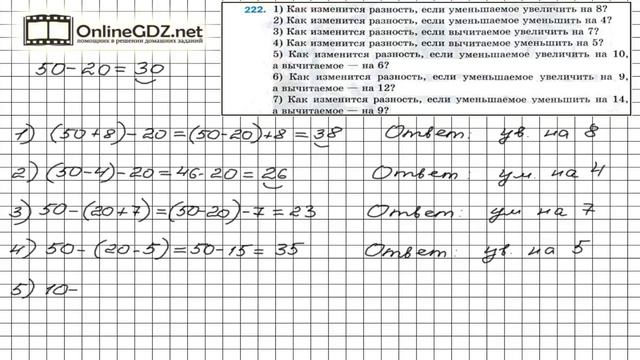 OnlineGDZ.net
помощник в решении домашних заданий
222. 1) Как изменится разность, если уменьшаемое увеличить на 8?
2) Как изменится разность, если уменьшаемое уменьшить на 4?
3) Как изменится разность, если вычитаемое увеличить на 7?
4) Как изменится разность, если вычитаемое уменьшить на 5?
5) Как изменится разность, если уменьшаемое увеличить на 10,
а вычитаемое — на 6?
6) Как изменится разность, если уменьшаемое увеличить на 9,
а вычитаемое — на 12?
7) Как изменится разность, если уменьшаемое уменьшить на 14,
а вычитаемое — на 9?
50-20=30
1) (50+8)-20=(50-20)+8=38 Ответ: ув. на 8
2) (50-4)-20=46-20=26 Ответ: ум. на 4
3) 50-(20+7)=(50-20)-7=23 Ответ: ум на 7
4) 50-(20-5)=50-15=35 Ответ: ув. на 5
5) 10-